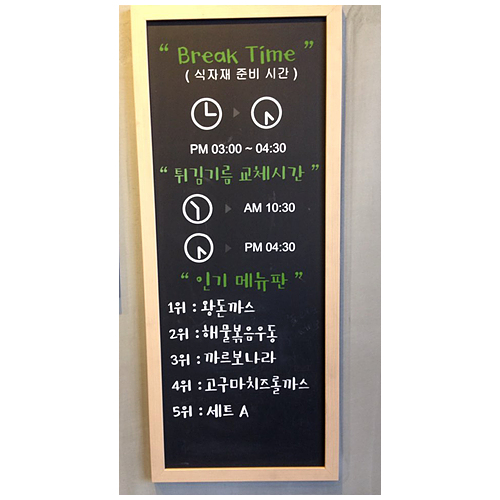 “ Break Time ”
( 식자재 준비 시간 )
PM 03:00 ~ 04:30
“ 튀김기름 교체시간 ”
AM 10:30
PM 04:30
“ 인기 메뉴판 ”
1위 : 왕돈까스
2위 : 해물볶음우동
3위 : 까르보나라
4위 : 고구마치즈롤까스
5위 : 세트 A